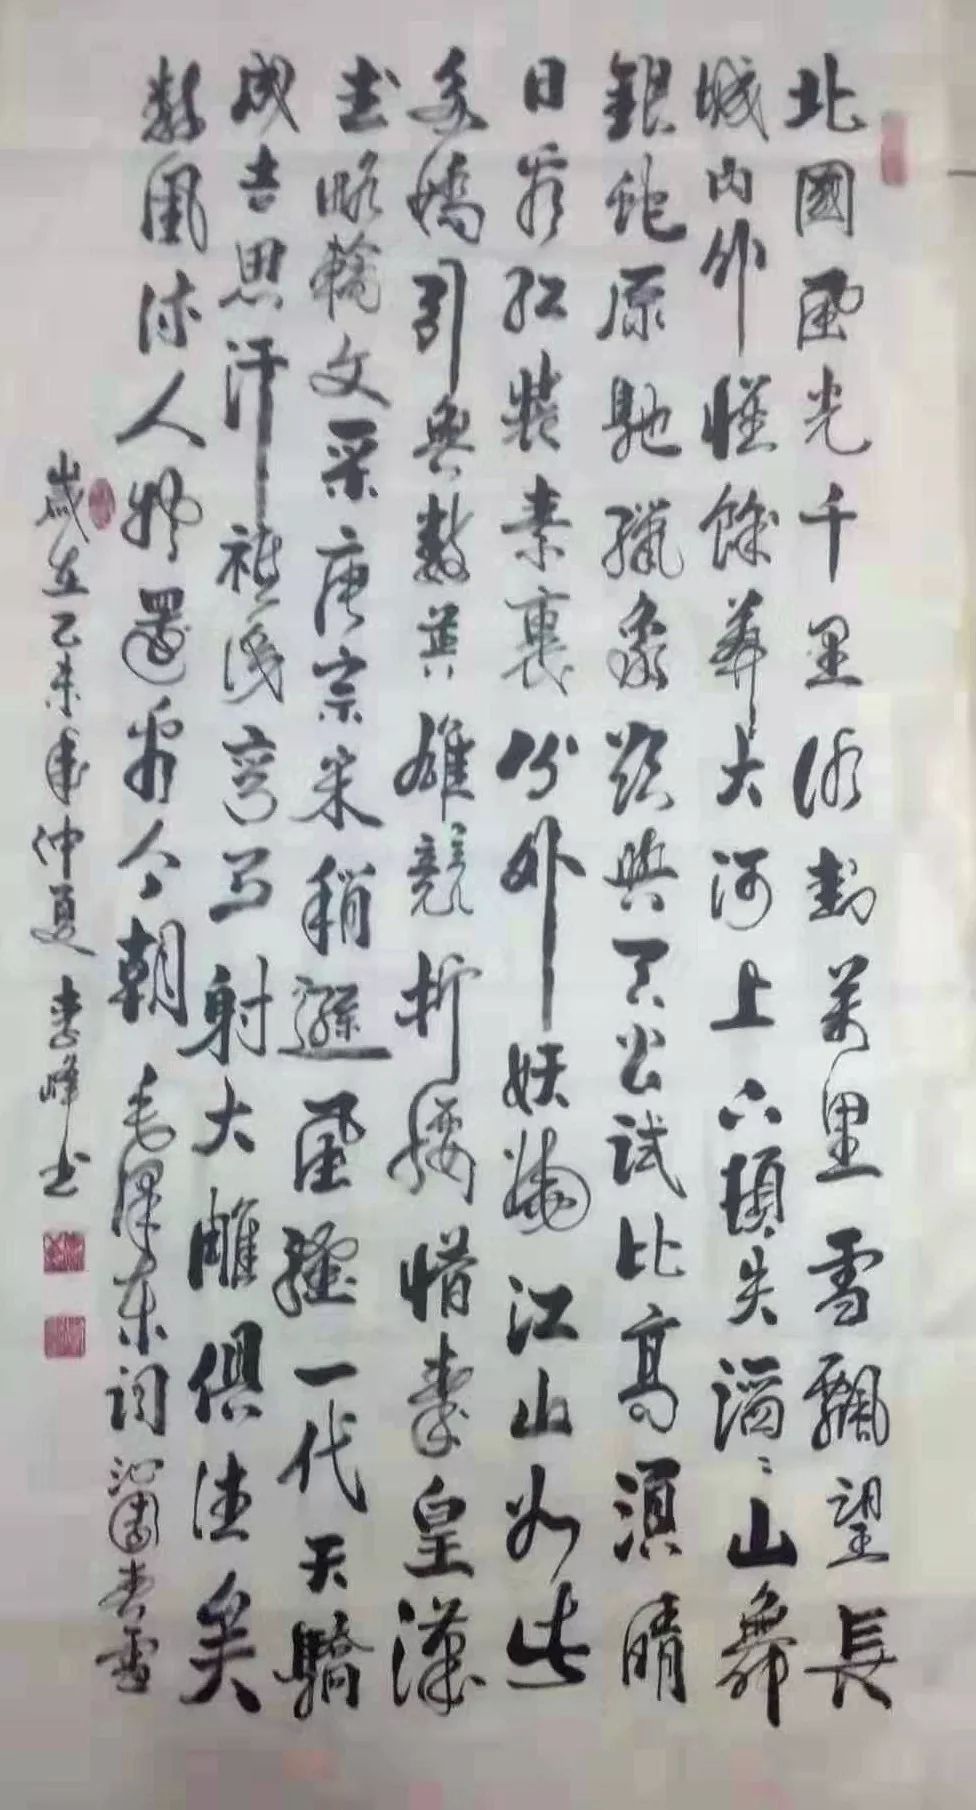 北國風光千里冰封萬里雪飄望長
城内外惟餘莽大河上下頓失滔〻山舞
銀蛇原馳蠟象欲與天公試比高須晴
日看紅裝素裹分外妖嬈江山如此
多嬌引無數英雄競折腰惜秦皇漢
武略輸文采唐宗宋稍遜風騷一代天驕
成吉思汗祗識彎弓射大雕俱往矣
數風流人物還看今朝 毛澤東詞沁園春雪
歲在乙未年仲夏 李峰书